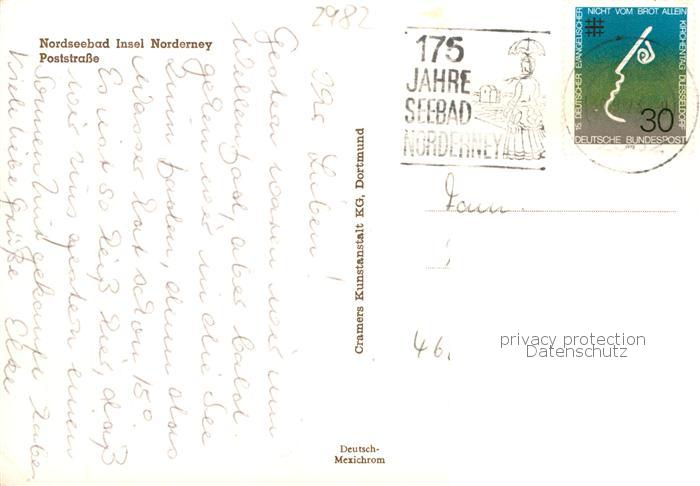 2982
Nordseebad Insel Norderney
Poststraße
Ihr Lieben!
Gestern waren wir im
Wellenbad, aber bald
gehen wir in die See
zum baden, denn das
Wasser hat schon 15°.
Es ist so heiß hier, daß
wir uns gestern einen
Sonnenhut gekauft haben.
Viele liebe Grüße Elke
Cramers Kunstanstalt KG, Dortmund
Deutsch-
Mexichrom
175
JAHRE
SEEBAD
NORDERNEY
15. DEUTSCHER EVANGELISCHER KIRCHENTAG DUESSELDORF
NICHT VOM BROT ALLEIN
30
DEUTSCHE BUNDESPOST
1973
Fam.
46
privacy protection
Datenschutz